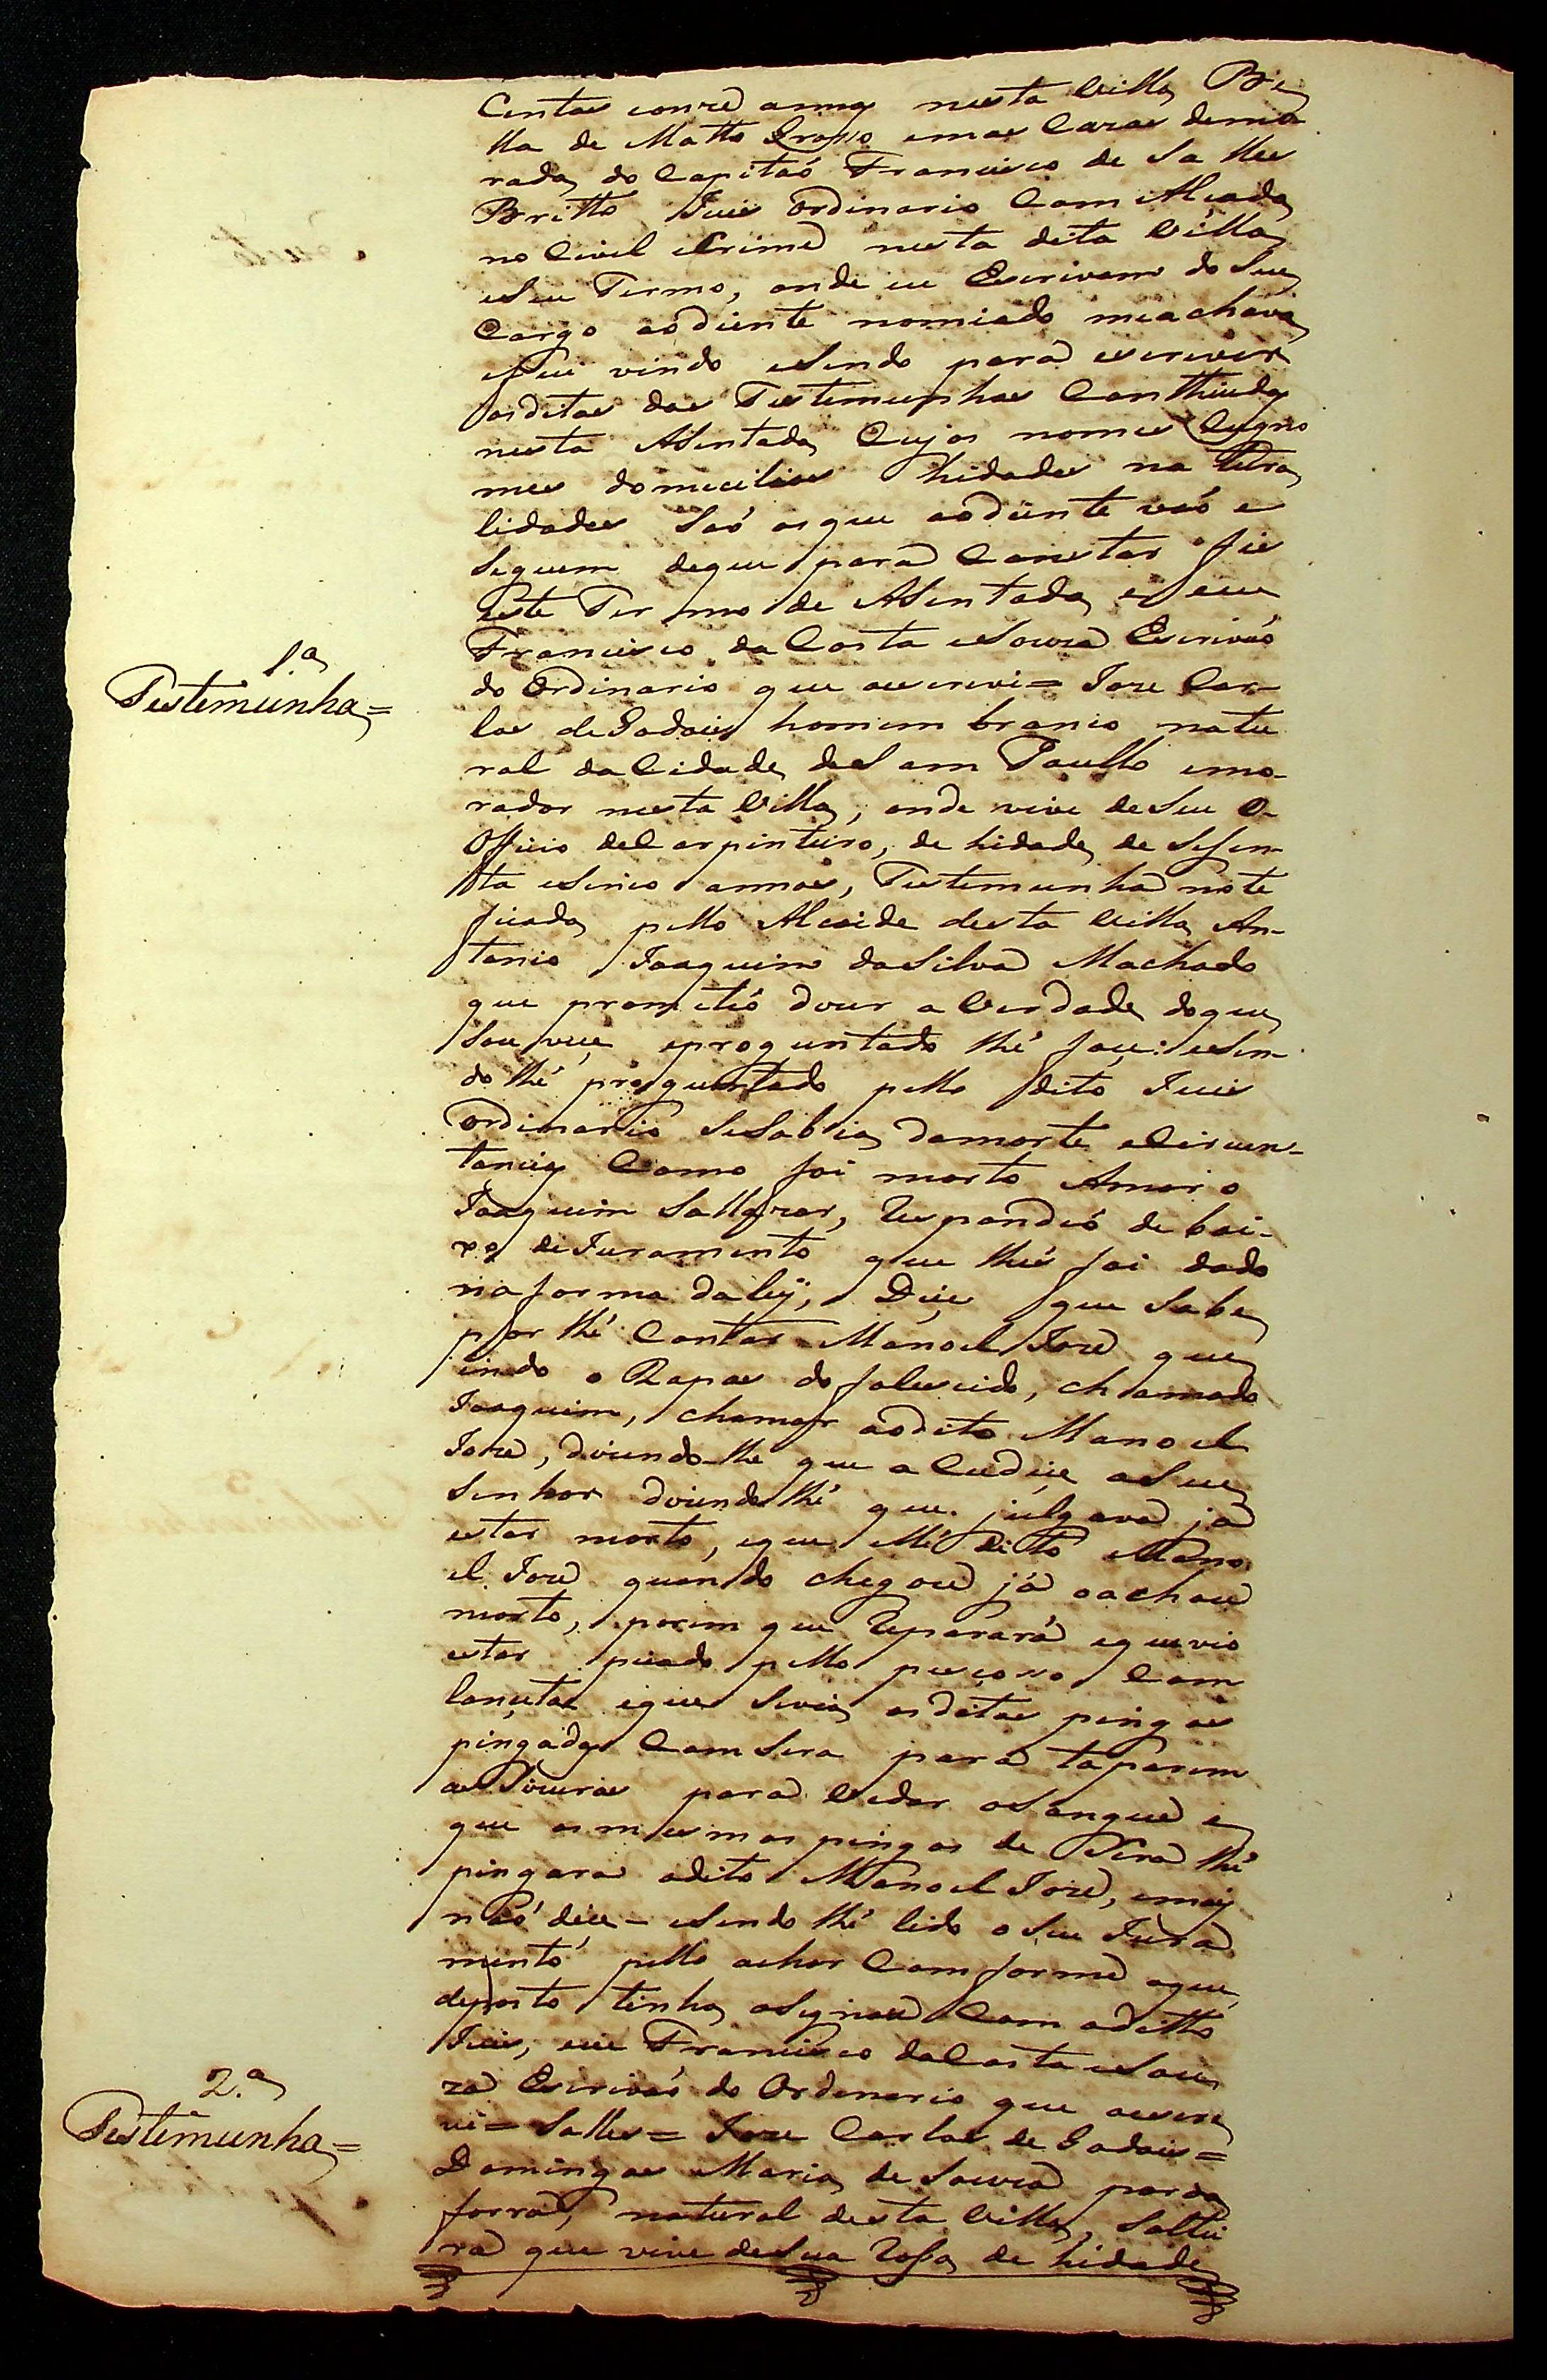 Centos eonze annos nesta Villa Be
lla de Matto Grosso emas Cazas demo
rada do Capitaó Francisco de Salles
Britto Juis Ordinario Com Alcada
no Civel eCrime nesta dita Villa
eSeu Termo, onde eu Escrivam do Seu
Cargo aodiente nomiado meachava
efui vindo eSendo para escrever
osditos das Testemunhas Conthiudas
nesta ASentada Cujos nomes Cognо
mes domicilios hidades na tura
lidades Saó asque aodiente vaó e
Seguem deque para Constar fis
este Termo de ASentada e eu
Francisco da Costa eSouza Escrivaó
do Ordinario que oescrevi = Joze Car
1.ª
Testemunha =
los de Godois homem branco natu
ral daCidade deSam Paullo emo-
rador nesta Villa, onde vive deSeu O-
Officio deCarpinteiro, de hidade de Sesen-
ta eSinco annos, Testemunha note
ficada pello Alcaide desta Villa An-
tonio Joaquim daSilva Machado
que prometió dizer a Verdade doque
Souvese eproguntado lhé foci: eSen-
do lhé proguntado pello dito Juis
Ordinario SeSabia damorte eCircuns-
tancias Como foi morto Amaro
Joaquim Sallgror, Respondeó debai-
xo deJuramento que lhé foi dado
na forma daley, Dice que Sabe
por lhé Contar Manoel Joze que
indo o Rapas do falescido, chamado
Joaquim, chamar aodito Manoel
Joze, dizendo-lhe que a Cudice aSeu
Senhor dizendolhé que julgava já
estar morto, eque elle dito Mano
el Joze quando chegou já oachou
morto, porem que Reparará eque vio
estar picado pello pescosso Com
lancetas eque Sevia asditas pingas
pingadas Com Sera para taparem
as Sizuras para Vedar oSangue e
que as mesmas pingas de Sera lhé
pingara odito Manoel Joze, emais
naó dice - eSendo lhé lido o Seu Jura
mento pello achar Comforme aque
deposto tinha aSignou Com oditto
Juis, eu Francisco daCosta eSou
za Escrivaó do Ordenario que oescre
vi = Salles = Joze Carlos de Godois =
2.ª
Testemunha =
Domingas Maria de Souza parda
forra, natural desta Villa, Soltei
ra que vive deSua Rosa de hidade